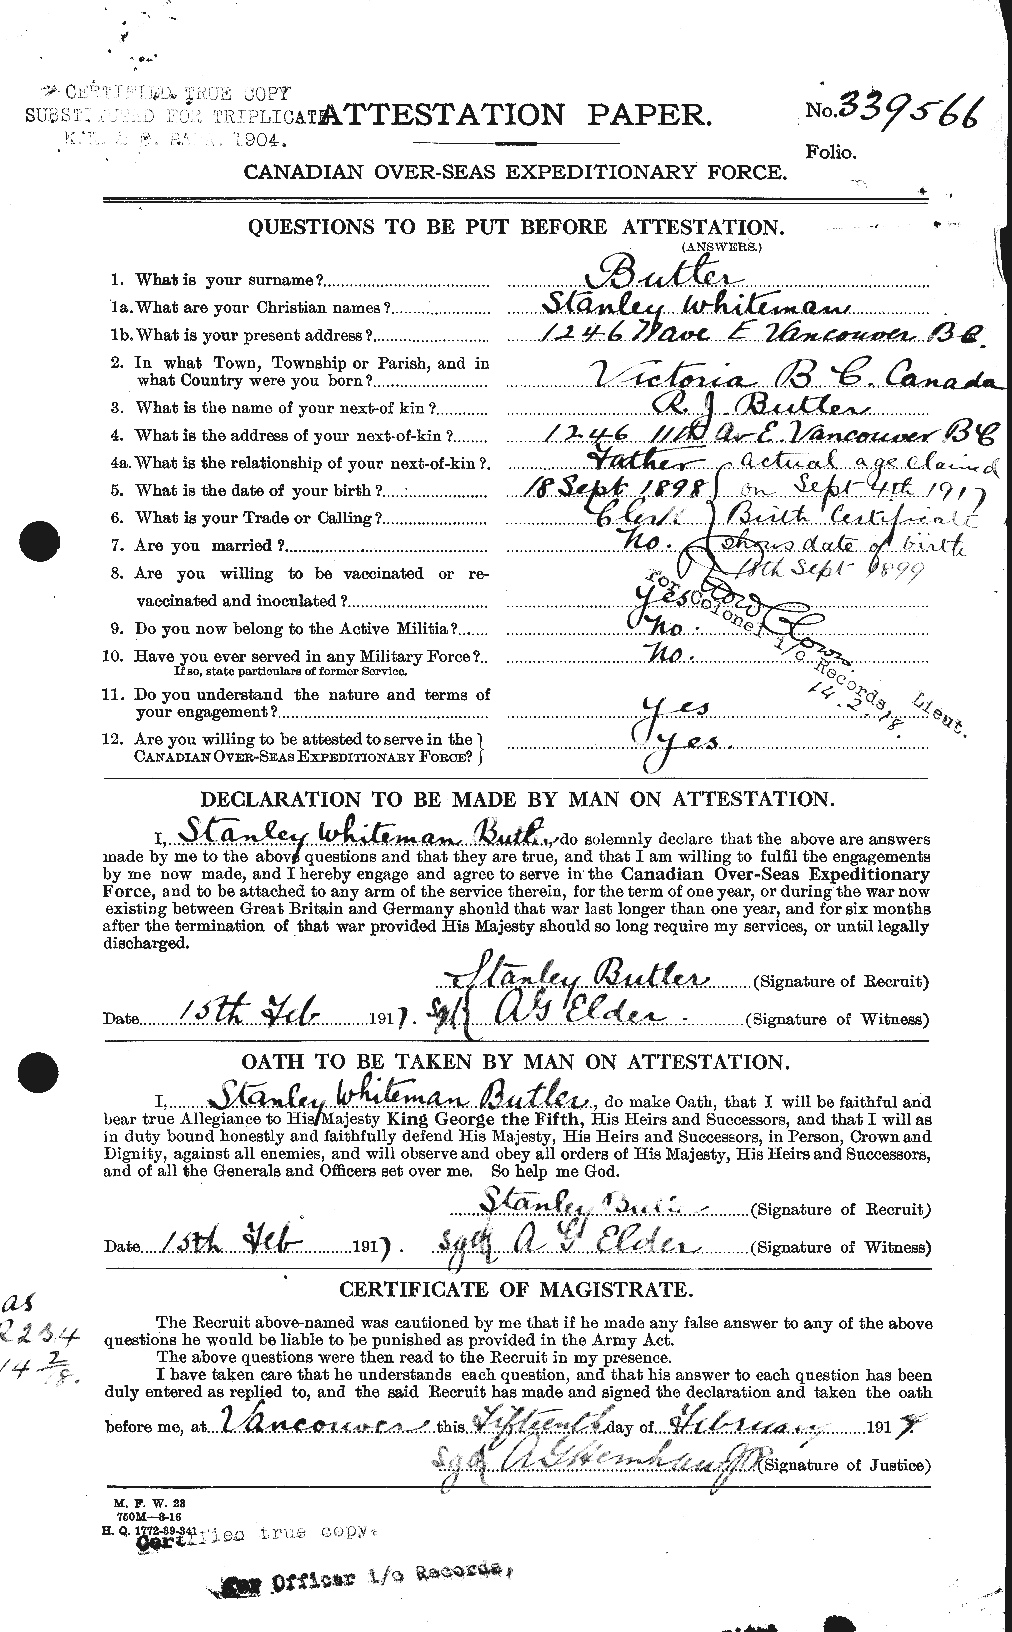 CERTIFIED TRUE COPY
SUBSTITUTED FOR TRIPLICATE
1904.
ATTESTATION PAPER.
No. 339566
Folio.
CANADIAN OVER-SEAS EXPEDITIONARY FORCE.
QUESTIONS TO BE PUT BEFORE ATTESTATION.
(ANSWERS.)
1. What is your surname? Butler
1a. What are your Christian names? Stanley Whiteman
1b. What is your present address? 1246 11 ave E Vancouver BC.
2. In what Town, Township or Parish, and in
what Country were you born? Victoria B C. Canada
3. What is the name of your next-of kin? R. J. Butler
4. What is the address of your next-of-kin? 1246 11th Av E. Vancouver BC
4a. What is the relationship of your next-of-kin? Father actual age claimed
5. What is the date of your birth? 18 Sept 1898 on Sept 4th 1917
6. What is your Trade or Calling? Clerk Birth Certificate
7. Are you married? No. shows date of birth
8. Are you willing to be vaccinated or re- 18th Sept 1899
vaccinated and inoculated? yes
9. Do you now belong to the Active Militia? No.
10. Have you ever served in any Military Force? No.
If so, state particulars of former Service.
for Colonel i/c Records, Lieut.
14.2.18.
11. Do you understand the nature and terms of
your engagement? yes
12. Are you willing to be attested to serve in the
CANADIAN OVER-SEAS EXPEDITIONARY FORCE? yes.
DECLARATION TO BE MADE BY MAN ON ATTESTATION.
I, Stanley Whiteman Butler, do solemnly declare that the above are answers
made by me to the above questions and that they are true, and that I am willing to fulfil the engagements
by me now made, and I hereby engage and agree to serve in the Canadian Over-Seas Expeditionary
Force, and to be attached to any arm of the service therein, for the term of one year, or during the war now
existing between Great Britain and Germany should that war last longer than one year, and for six months
after the termination of that war provided His Majesty should so long require my services, or until legally
discharged.
Stanley Butler (Signature of Recruit)
Date 15th Feb 1917. Sgd A G Elder. (Signature of Witness)
OATH TO BE TAKEN BY MAN ON ATTESTATION.
I, Stanley Whiteman Butler, do make Oath, that I will be faithful and
bear true Allegiance to His Majesty King George the Fifth, His Heirs and Successors, and that I will as
in duty bound honestly and faithfully defend His Majesty, His Heirs and Successors, in Person, Crown and
Dignity, against all enemies, and will observe and obey all orders of His Majesty, His Heirs and Successors,
and of all the Generals and Officers set over me. So help me God.
Stanley Butler (Signature of Recruit)
Date 15th Feb 1917. Sgd A G Elder (Signature of Witness)
CERTIFICATE OF MAGISTRATE.
as
2234
14 2/18.
The Recruit above-named was cautioned by me that if he made any false answer to any of the above
questions he would be liable to be punished as provided in the Army Act.
The above questions were then read to the Recruit in my presence.
I have taken care that he understands each question, and that his answer to each question has been
duly entered as replied to, and the said Recruit has made and signed the declaration and taken the oath
before me, at Vancouver this Fifteenth day of February 1917.
Sgd (Signature of Justice)
M. F. W. 23
750M—8-16
H. Q. 1772-39-341
Certified true copy.
For Officer i/c Records,